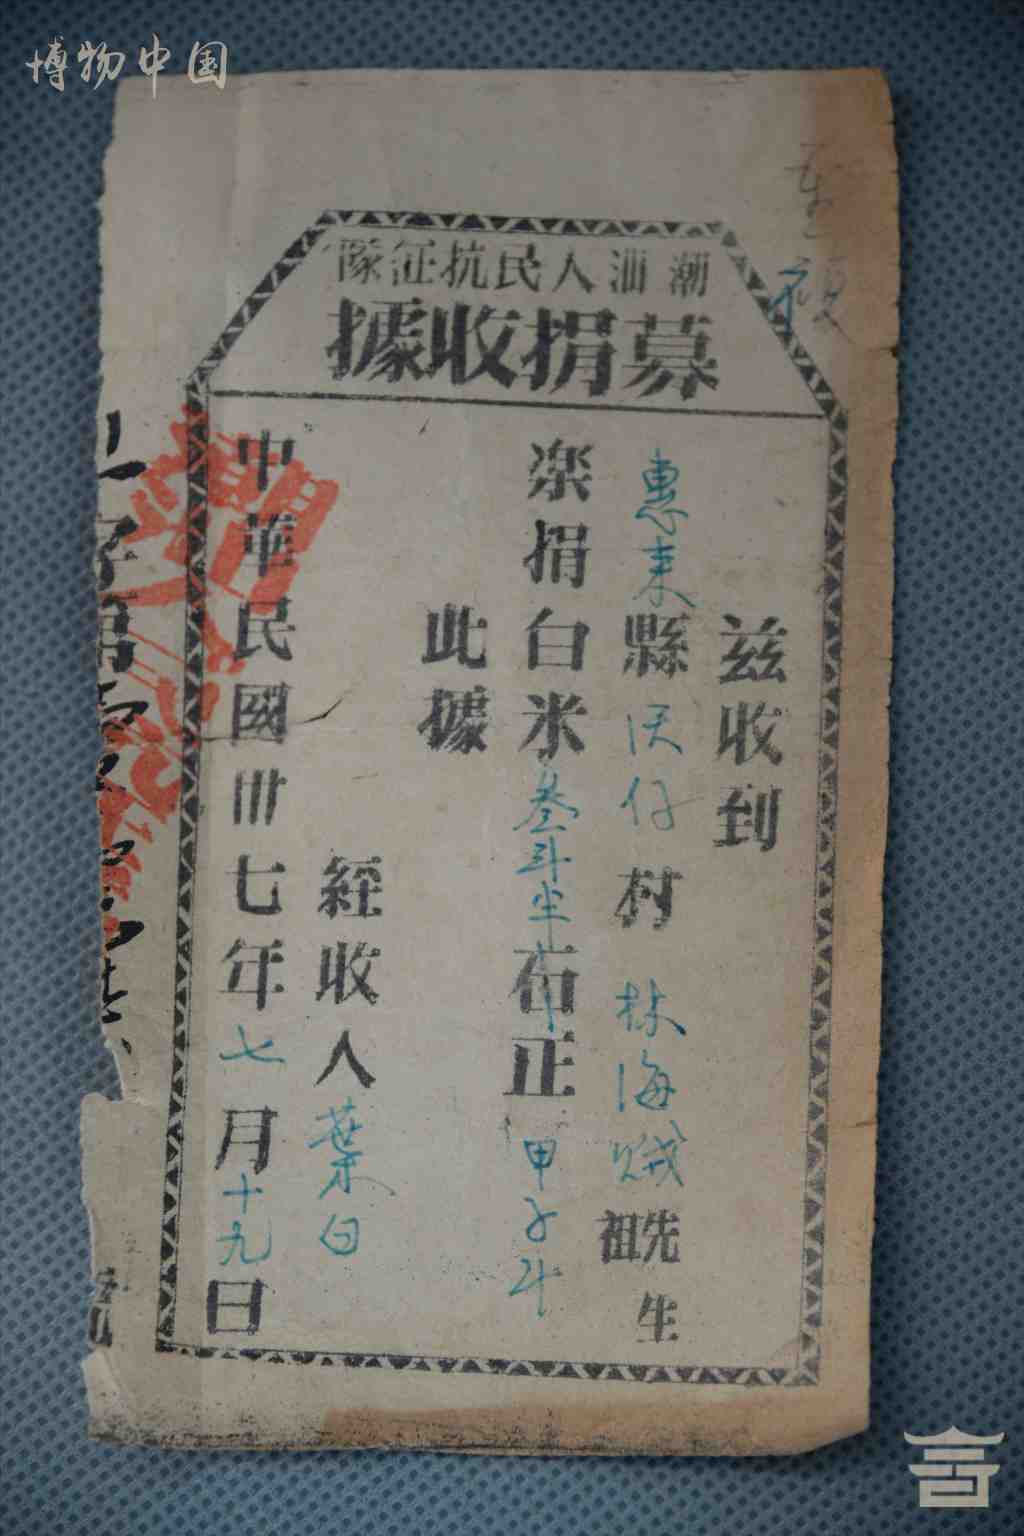 博物中国
潮汕人民抗征隊
募捐收據
茲收到
惠来縣 仔村 林海 先生
祖
楽捐白米叁斗 石正 甲子斗
此據
經收人 葉白
中華民國卅七年七月十九日